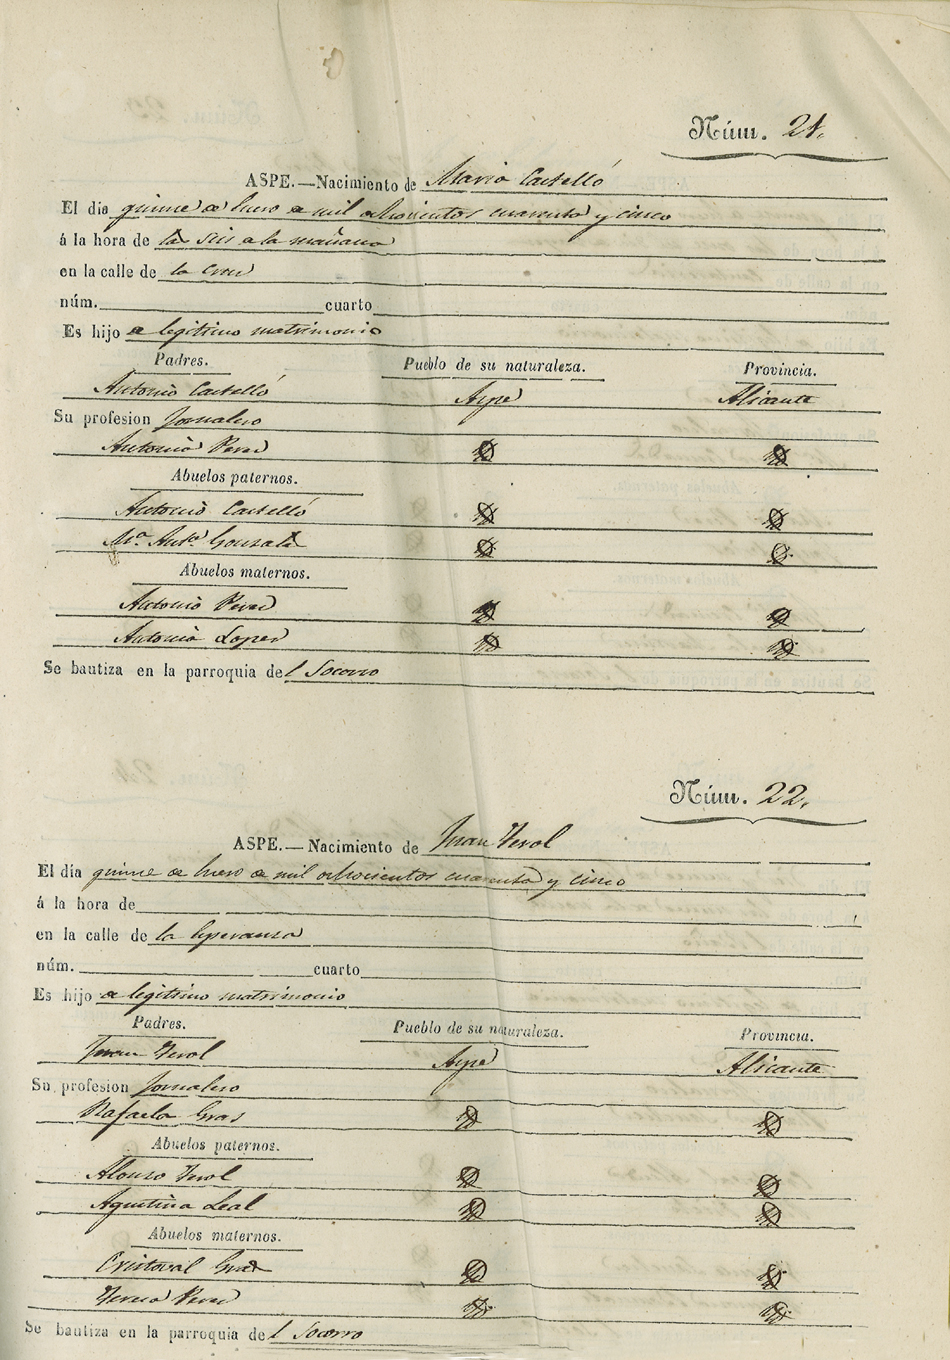 Núm. 21.
ASPE.—Nacimiento de Maria Castelló
El dia quinse de Enero de mil ochocientos cuarenta y cinco
á la hora de la seis de la mañana
en la calle de la Cruz
núm. cuarto
Es hijo de legitimo matrimonio
Padres. Pueblo de su naturaleza. Provincia.
Antonio Castelló Aspe Alicante
Su profesion Jornalero
Antonia Perez
Abuelos paternos.
Antonio Castelló
Mª Antª Gonzalez
Abuelos maternos.
Antonio Perez
Antonia Lopez
Se bautiza en la parroquia del Socorro
Núm. 22.
ASPE.—Nacimiento de Juan Verol
El día quinse de Enero de mil ochocientos cuarenta y cinco
á la hora de
en la calle de la Esperanza
núm. cuarto
Es hijo de legitimo matrimonio
Padres. Pueblo de su naturaleza. Provincia.
Juan Verol Aspe Alicante
Su profesion Jornalero
Rafaela Gras
Abuelos paternos.
Alonso Verol
Agustina Leal
Abuelos maternos.
Cristoval Gras
Teresa Perez
Se bautiza en la parroquia del Socorro